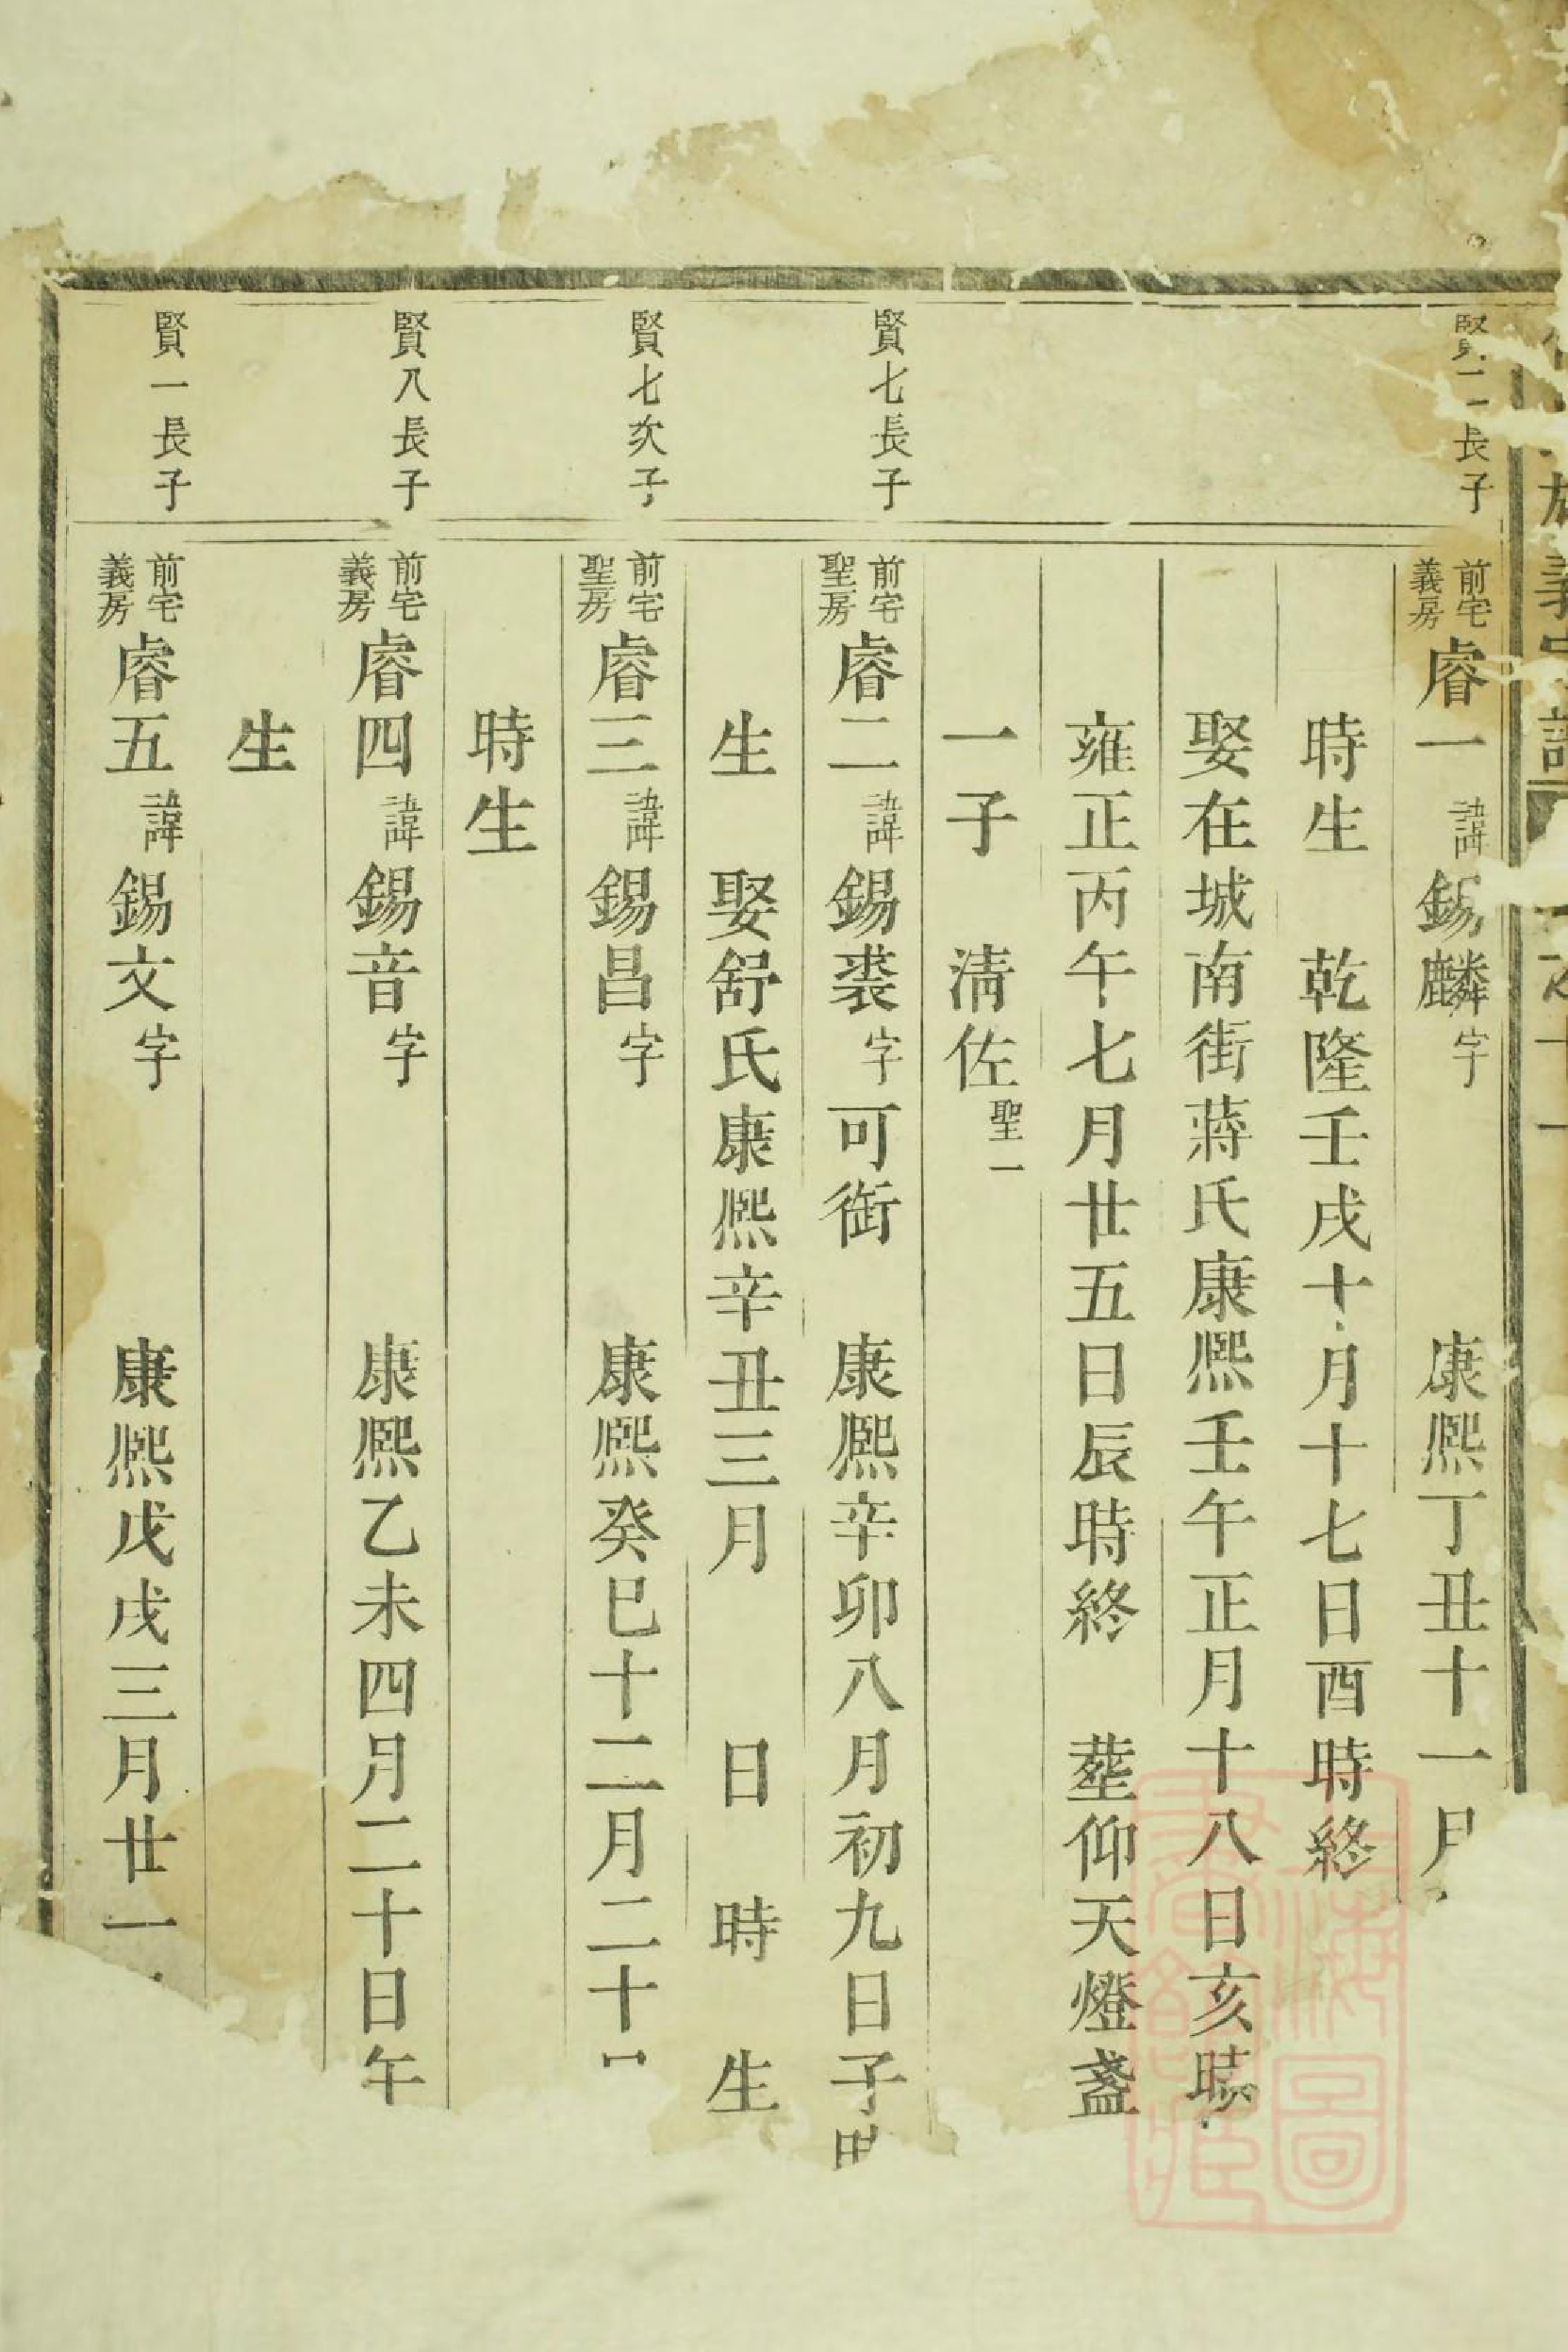 賢二長子
前宅義房睿一諱錫麟字 康熙丁丑十一月
時生 乾隆壬戌十月十七日酉時終
娶在城南街蔣氏康熙壬午正月十八日亥時
雍正丙午七月廿五日辰時終 塟仰天燈盞
一子 淸佐聖一
賢七長子
前宅聖房睿二諱錫裘字可銜 康熙辛卯八月初九日子時
生 娶舒氏康熙辛丑三月 日 時 生
賢七次子
前宅聖房睿三諱錫昌字 康熙癸巳十二月二十
時生
賢八長子
前宅義房睿四諱錫音字 康熙乙未四月二十日午
生
賢一長子
前宅義房睿五諱錫文字 康熙戊戌三月廿一